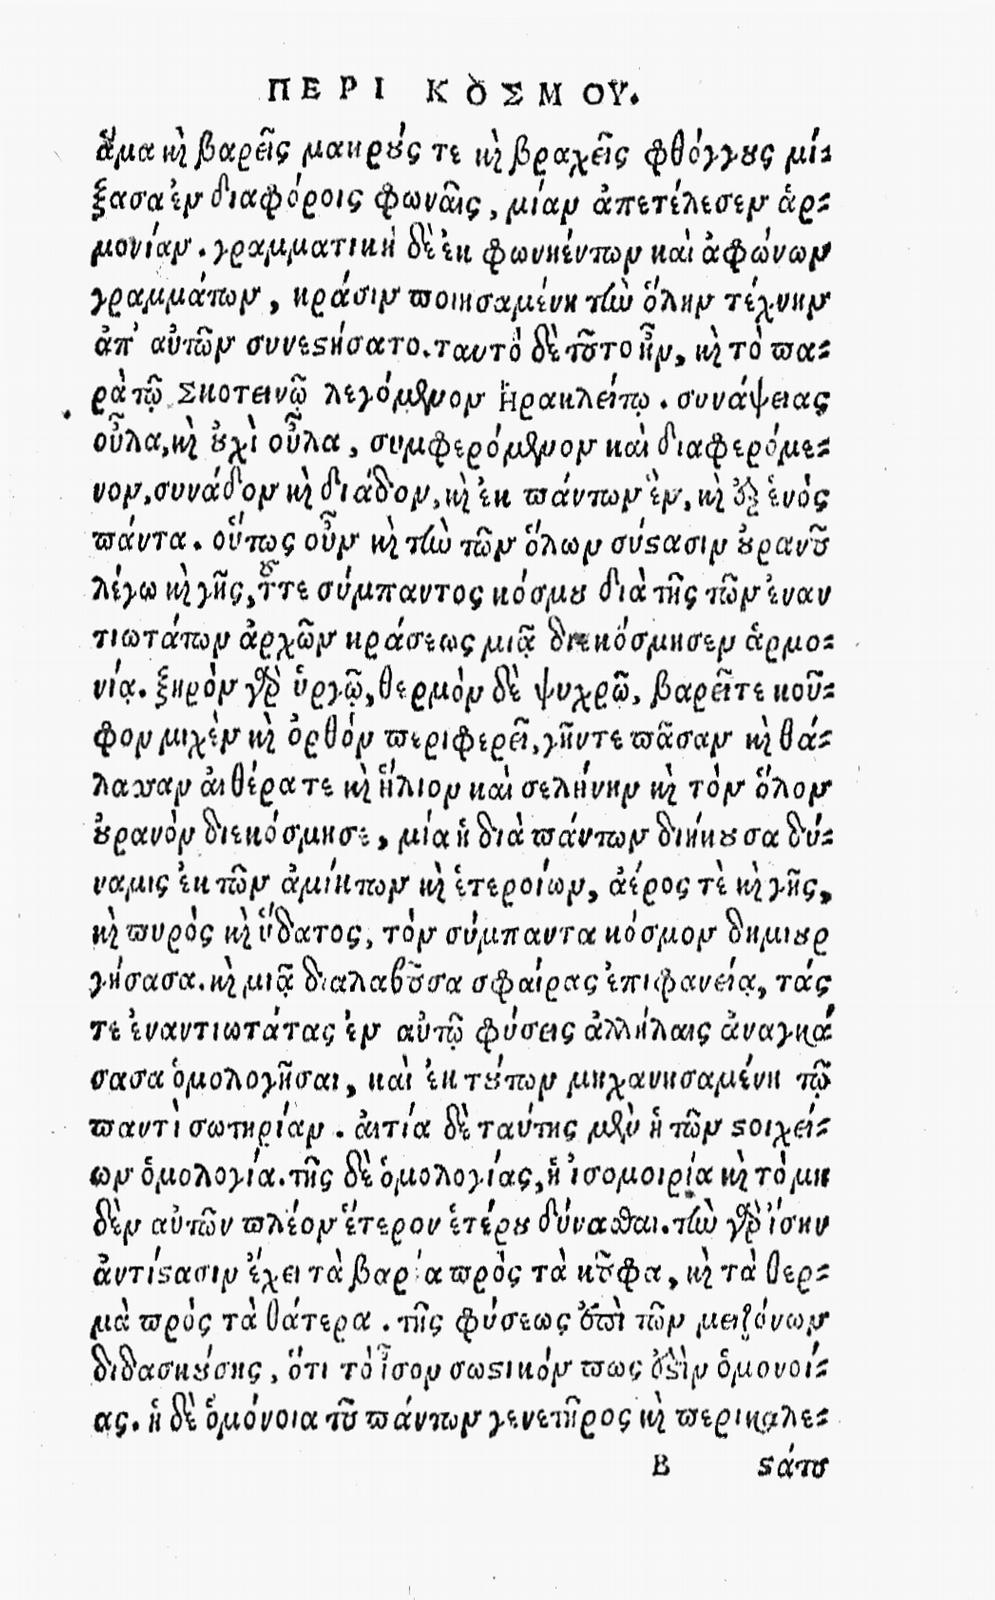 ΠΕΡΙ ΚΟΣΜΟΥ.
ἅμα καὶ βαρεῖς μακρούς τε καὶ βραχεῖς φθόγγους μί-
ξασα ἐν διαφόροις φωναῖς, μίαν ἀπετέλεσεν ἁρ-
μονίαν. γραμματικὴ δὲ ἐκ φωνηέντων καὶ ἀφώνων
γραμμάτων, κρᾶσιν ποιησαμένη τὴν ὅλην τέχνην
ἀπ' αὐτῶν συνεστήσατο. ταυτὸ δὲ τοῦτο ἦν, καὶ τὸ πα-
ρὰ τῷ Σκοτεινῷ λεγόμενον Ἡρακλείτῳ. συνάψειας
οὖλα, καὶ οὐχὶ οὖλα, συμφερόμενον καὶ διαφερόμε-
νον, συνάδον καὶ διάδον, καὶ ἐκ πάντων ἓν, καὶ ἐξ ἑνός
πάντα. οὕτως οὖν καὶ τὴν τῶν ὅλων σύστασιν οὐρανοῦ
λέγω καὶ γῆς, τοῦτε σύμπαντος κόσμου διὰ τῆς τῶν ἐναν
τιωτάτων ἀρχῶν κράσεως μιᾷ διεκόσμησεν ἁρμο-
νίᾳ. ξηρὸν γὰρ ὑργῷ, θερμὸν δὲ ψυχρῷ, βαρεῖτε κοῦ-
φον μιχὲν καὶ ὀρθὸν περιφερεῖ, γῆντε πᾶσαν καὶ θά-
λατταν αἰθέρα τε καὶ ἥλιον καὶ σελήνην καὶ τὸν ὅλον
οὐρανὸν διεκόσμησε, μία ἡ διὰ πάντων διήκουσα δύ-
ναμις ἐκ τῶν ἀμίκτων καὶ ἑτεροίων, ἀέρος τὲ καὶ γῆς,
καὶ πυρός καὶ ὕδατος, τὸν σύμπαντα κόσμον δημιουρ
γήσασα. καὶ μιᾷ διαλαβοῦσα σφαίρας ἐπιφανείᾳ, τάς
τε ἐναντιωτάτας ἐν αὐτῷ φύσεις ἀλλήλαις ἀναγκά
σασα ὁμολογῆσαι, καὶ ἐκ τούτων μηχανησαμένη τῷ
παντὶ σωτηρίαν. αἰτία δὲ ταύτης μὲν ἡ τῶν στοιχεί-
ων ὁμολογία. τῆς δὲ ὁμολογίας, ἡ ἰσομοιρία καὶ τὸ μη
δὲν αὐτῶν πλέον ἕτερον ἑτέρου δύνασθαι. τὴν γὰρ ἴσην
ἀντίστασιν ἔχει τὰ βαρέα πρὸς τὰ κοῦφα, καὶ τὰ θερ-
μὰ πρὸς τὰ θάτερα. τῆς φύσεως ἐπὶ τῶν μειζόνων
διδασκούσης, ὅτι τὸ ἶσον σωστικόν πως ἐστὶν ὁμονοί-
ας. ἡ δὲ ὁμόνοια τοῦ πάντων γενετῆρος καὶ περικαλε-
Β στάτου